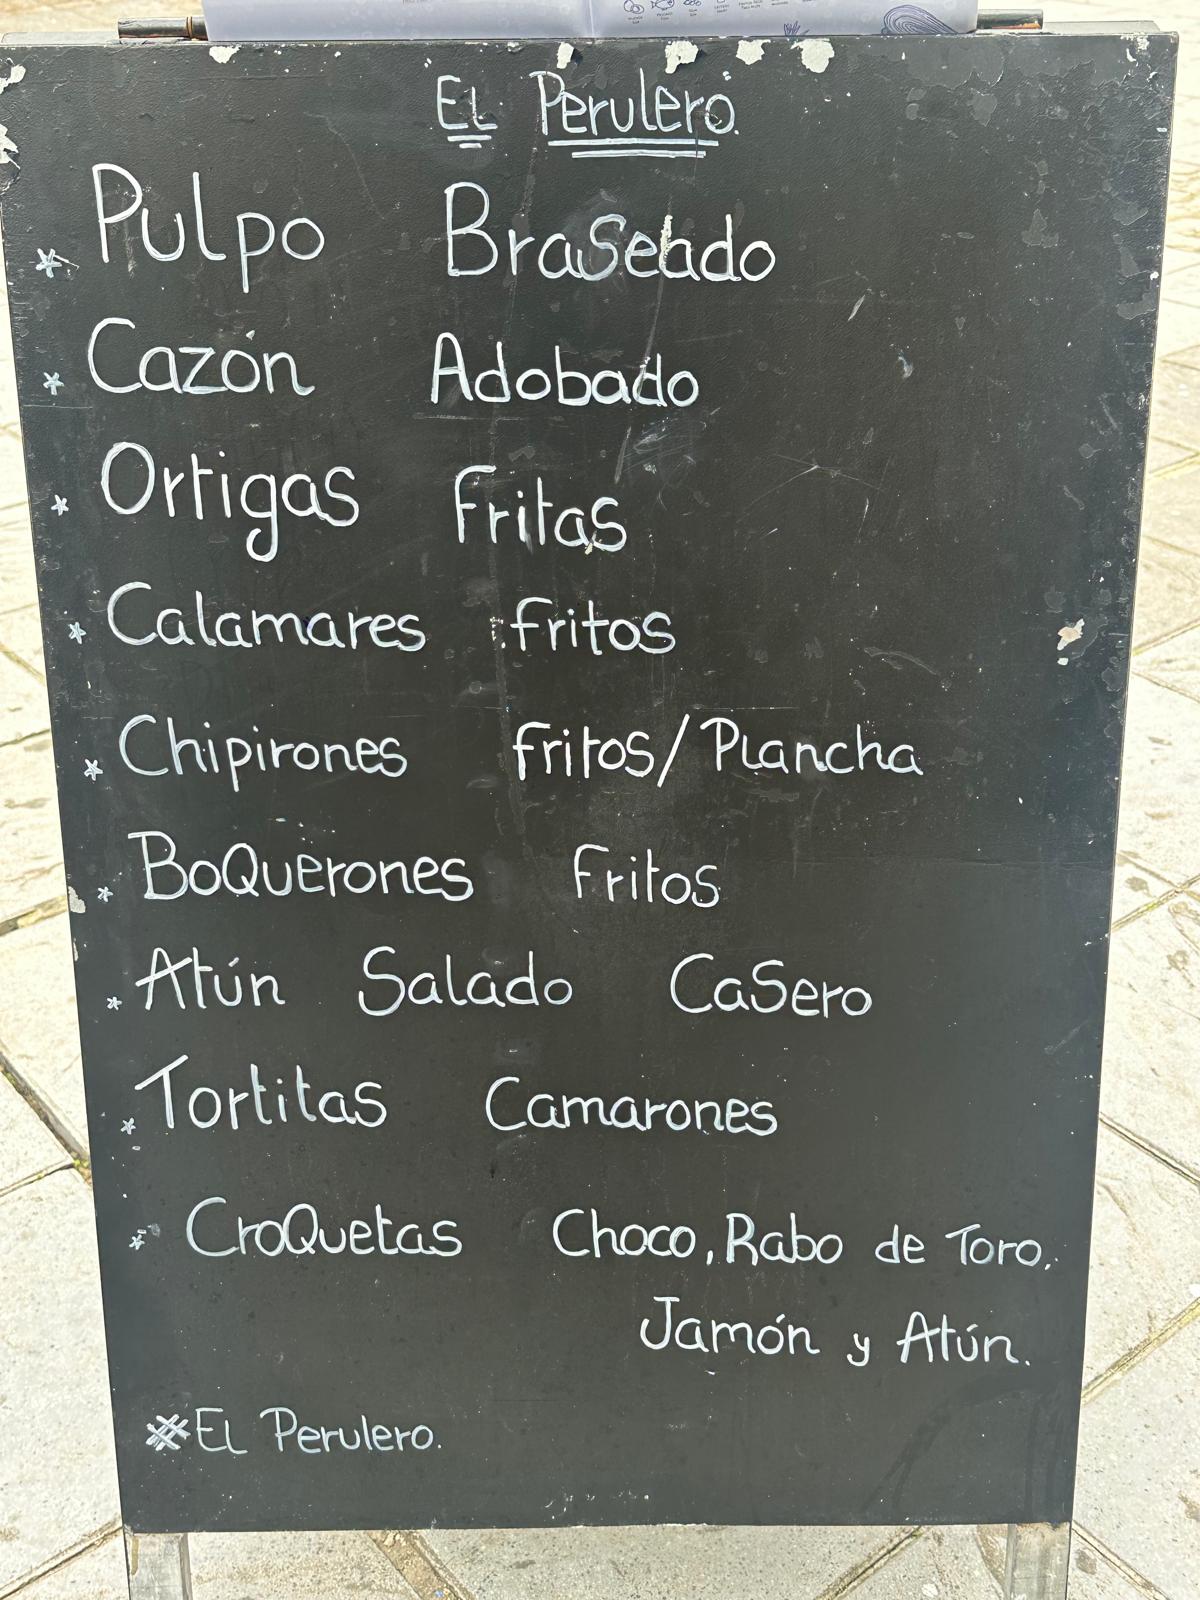 El Perulero.
* Pulpo Braseado
* Cazón Adobado
* Ortigas Fritas
* Calamares fritos
* Chipirones fritos/Plancha
* BoQuerones Fritos
* Atún Salado CaSero
* Tortitas Camarones
* CroQuetas Choco, Rabo de Toro,
Jamón y Atún.
#EL Perulero.